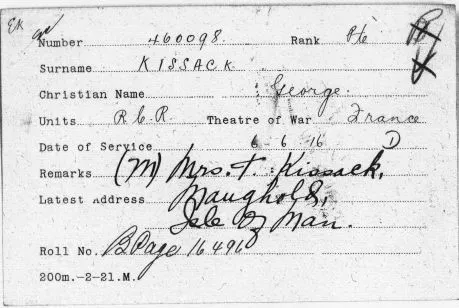 EK
Number 460098. Rank Pte
Surname KISSACK
Christian Name George.
Units R.C.R. Theatre of War France
Date of Service 6-6-16 D
Remarks (M) Mrs. T. Kissack,
Latest Address Maughold,
Isle of Man.
Roll No. B Page 16496
200m.-2-21.M.